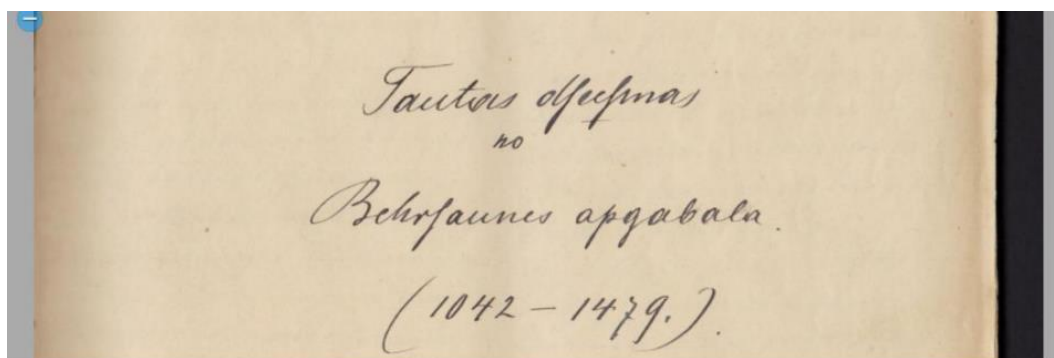 Tautas dſeeſmas
no
Behrſaunes apgabala.
(1042 – 1479.).